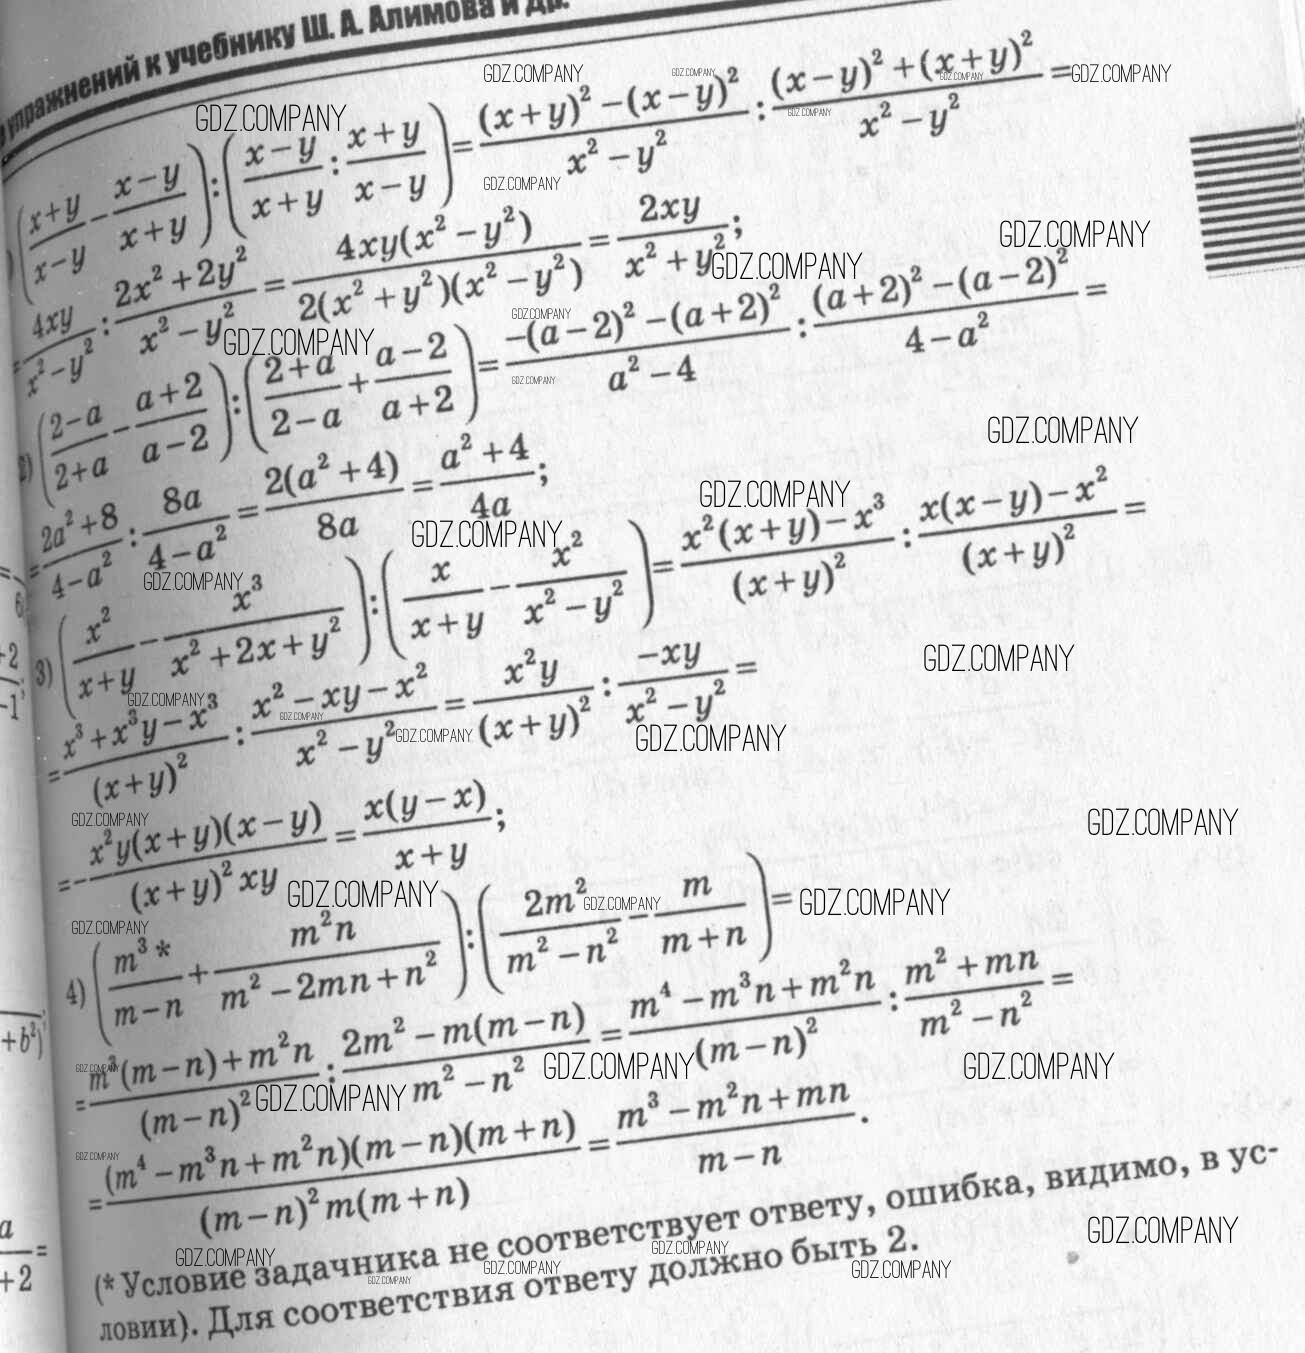 упражнений к учебнику Ш. А. Алимова и др.
(x+y/x−y − x−y/x+y) : (x−y/x+y : x+y/x−y) = (x+y)² − (x−y)²/x² − y² : (x−y)² + (x+y)²/x² − y² =
= 4xy/x² − y² : 2x² + 2y²/x² − y² = 4xy(x² − y²)/2(x² + y²)(x² − y²) = 2xy/x² + y²;
2) (2−a/2+a − a+2/a−2) : (2+a/2−a + a−2/a+2) = −(a−2)² − (a+2)²/a² − 4 : (a+2)² − (a−2)²/4 − a² =
= 2a² + 8/4 − a² : 8a/4 − a² = 2(a² + 4)/8a = a² + 4/4a;
3) (x²/x+y − x³/x² + 2x + y²) : (x/x+y − x²/x² − y²) = x²(x+y) − x³/(x+y)² : x(x−y) − x²/(x+y)² =
= x³ + x³y − x³/(x+y)² : x² − xy − x²/x² − y² = x²y/(x+y)² : −xy/x² − y² =
= − x²y(x+y)(x−y)/(x+y)² xy = x(y−x)/x+y;
4) (m³ */m−n + m²n/m² − 2mn + n²) : (2m²/m² − n² − m/m+n) =
= m³(m−n) + m²n/(m−n)² : 2m² − m(m−n)/m² − n² = m⁴ − m³n + m²n/(m−n)² : m² + mn/m² − n² =
= (m⁴ − m³n + m²n)(m−n)(m+n)/(m−n)² m(m+n) = m³ − m²n + mn/m−n.
(* Условие задачника не соответствует ответу, ошибка, видимо, в ус-
ловии). Для соответствия ответу должно быть 2.
GDZ.COMPANY